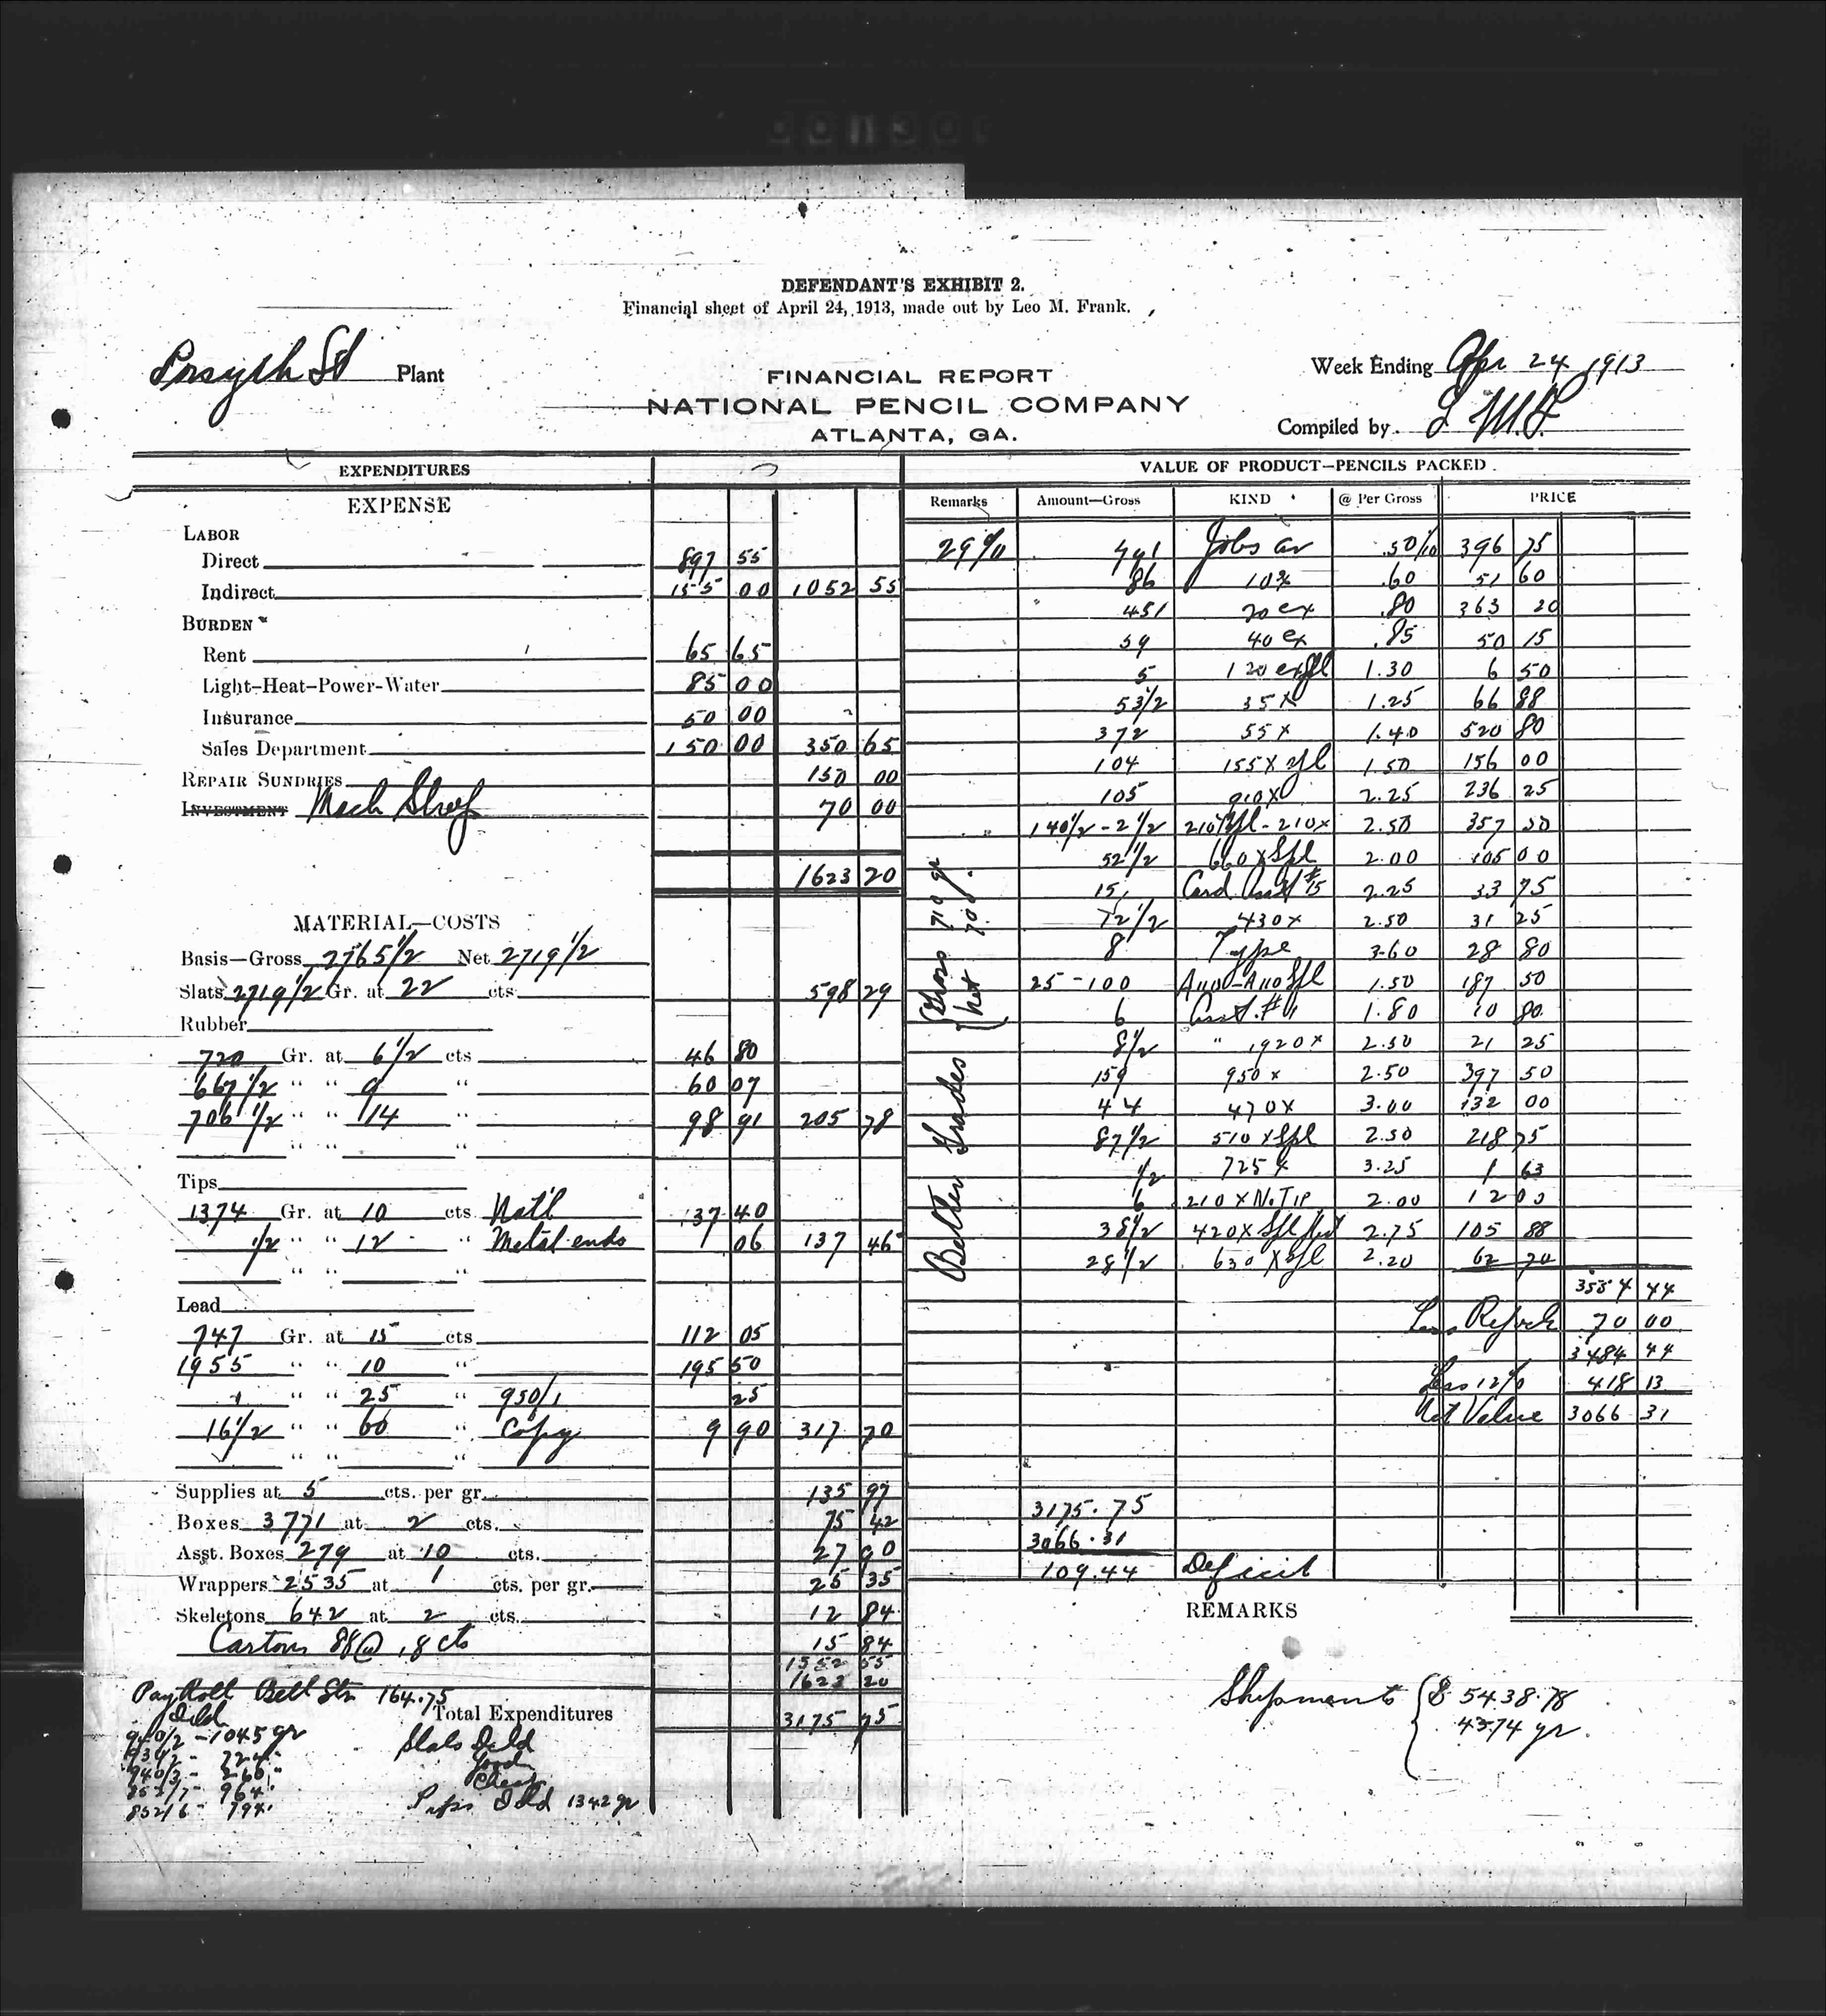 DEFENDANT'S EXHIBIT 2.
Financial sheet of April 24, 1913, made out by Leo M. Frank.
Forsyth St Plant
Week Ending Apr 24 1913
FINANCIAL REPORT
NATIONAL PENCIL COMPANY
ATLANTA, GA.
Compiled by L M F
EXPENDITURES
EXPENSE
LABOR
Direct 897 55
Indirect 155 00 1052 55
BURDEN
Rent 65 65
Light-Heat-Power-Water 85 00
Insurance 50 00
Sales Department 150 00 350 65
REPAIR SUNDRIES 150 00
INVESTMENT Mach Shop 70 00
1623 20
MATERIAL—COSTS
Basis—Gross 2765 1/2 Net 2719 1/2
Slats 2719 1/2 Gr. at 22 cts 598 29
Rubber
720 Gr. at 6 1/2 cts 46 80
667 1/2 " " 9 " 60 07
706 1/2 " " 14 " 98 91 205 78
" " "
Tips
1374 Gr. at 10 cts Nat'l 137 40
1/2 " " 12 " Metal ends 06 137 46
" " "
Lead
747 Gr. at 15 cts 112 05
1955 " " 10 " 195 50
1 " " 25 " 950/1 25
16 1/2 " " 60 " Copy 9 90 317 70
" " "
Supplies at 5 cts. per gr. 135 97
Boxes 3771 at 2 cts. 75 42
Asst. Boxes 279 at 10 cts. 27 90
Wrappers 2535 at 1 cts. per gr. 25 35
Skeletons 642 at 2 cts. 12 84
Cartons 88 @ .18 cts 15 84
1552 55
1623 20
Total Expenditures 3175 75
Pay Roll Bell Str 164.75
Dild
940/2 - 1045 gr
- 724
940/3 - 260
- 964
- 794
Slats Dild
Good
Cheap
Dild 1342 gr
VALUE OF PRODUCT—PENCILS PACKED
Remarks Amount—Gross KIND @ Per Gross PRICE
791 Jobs av 396 75
86 10x .60 51 60
451 20 ex .80 363 20
59 40 ex .85 50 15
5 120 ex Spl 1.30 6 50
53 1/2 35 x 1.25 66 88
372 55 x 1.40 520 80
104 155 x Spl 1.50 156 00
105 910 x 2.25 236 25
140 1/2 - 2 1/2 210 x Spl - 210 x 2.50 357 50
52 1/2 660 x Spl 2.00 105 00
15 Card Asst #15 2.25 33 75
12 1/2 430 x 2.50 31 25
8 Type 3.60 28 80
25 - 100 A110 - A110 Spl 1.50 187 50
6 Asst. # 1.80 10 80
8 1/2 " 1920 x 2.50 21 25
159 950 x 2.50 397 50
44 470 x 3.00 132 00
87 1/2 510 x Spl 2.50 218 75
1/2 725 x 3.25 1 63
6 210 x No Tip 2.00 12 00
38 1/2 420 x Spl Red 2.75 105 88
28 1/2 630 x Spl 2.20 62 70
Better Grades Gross 710 gr
Net 700
3554 44
Less Repack 70 00
3484 44
Less 12% 418 13
Net Value 3066 31
3175.75
3066.31
109.44 Deficit
REMARKS
Shipments $ 5438.78
4374 gr.